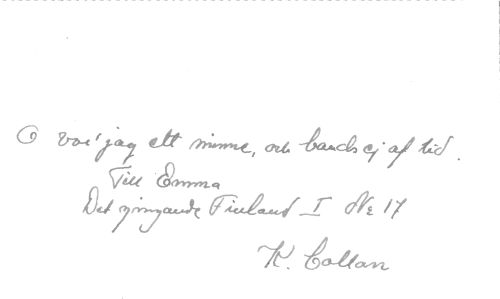 O vor' jag ett minne, och bands ej af tid.
Till Emma
Det sjungande Finland I № 17
K. Collan